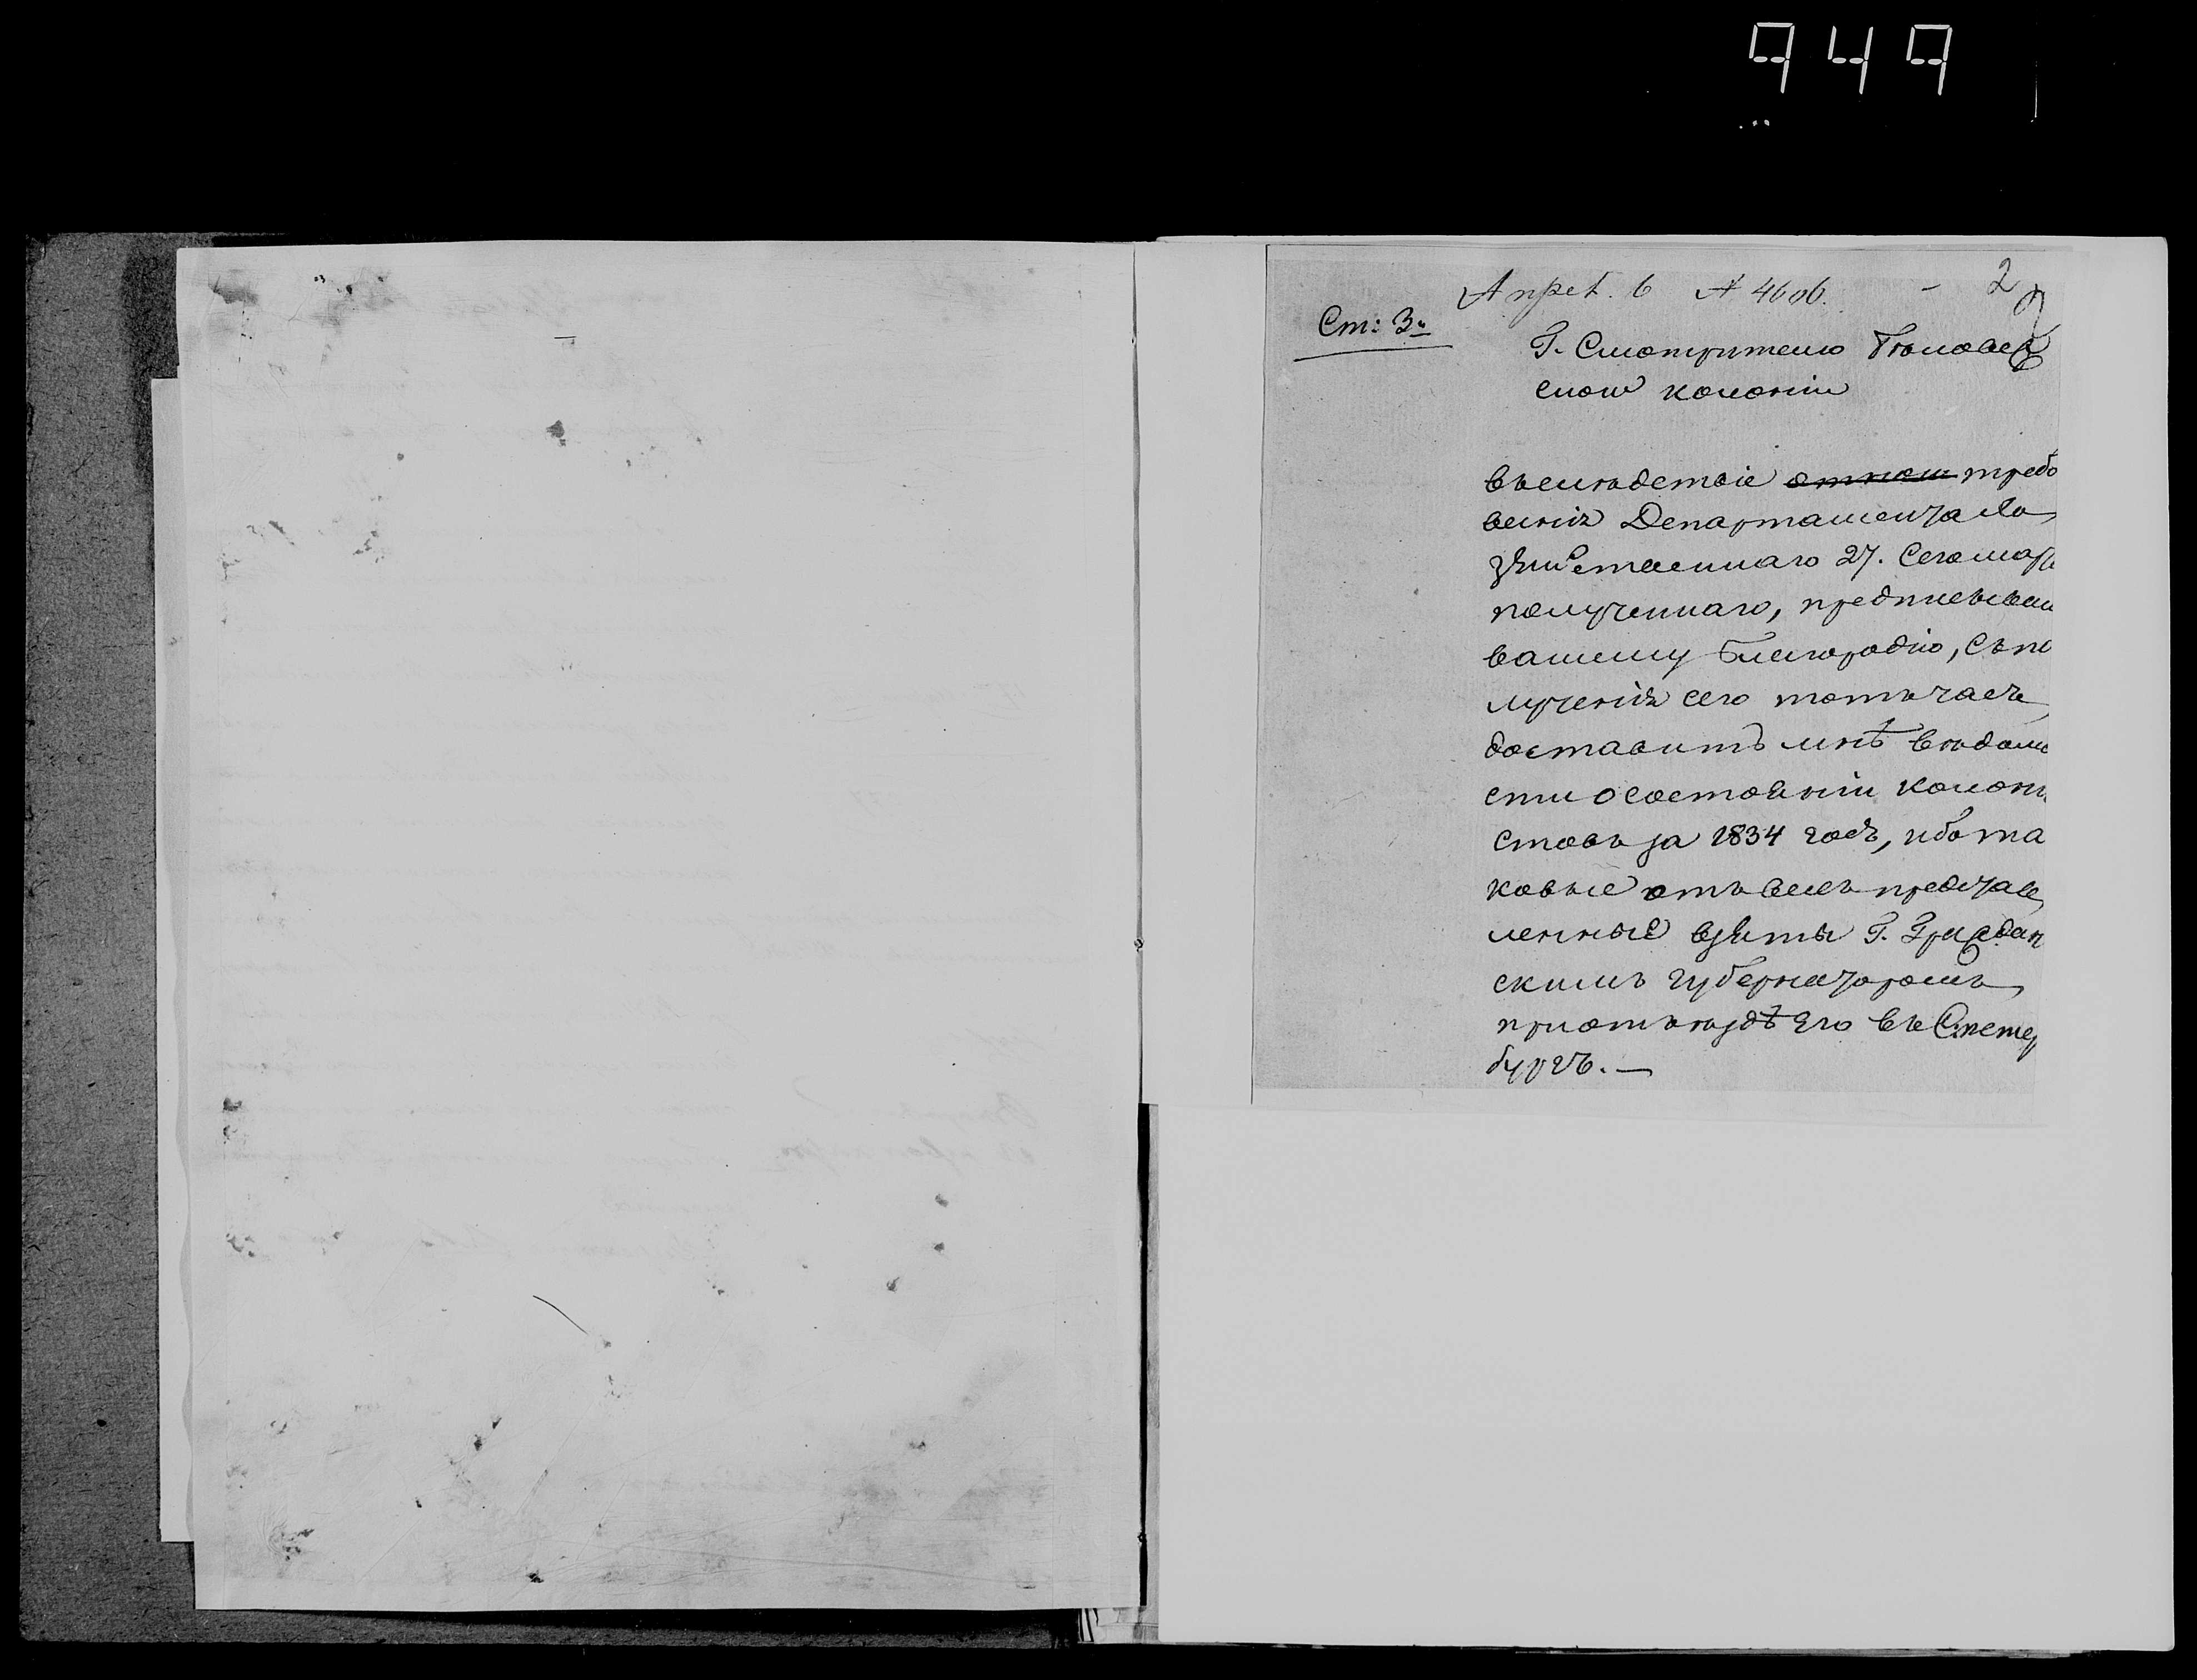 949
Апрел. 6 № 4606. – 2
Ст: 3я
Г. Смотрителю Бѣловеж
ской колоніи
Вслѣдствіе отнош требо
ванія Департамента Хо
зяйственнаго 27. Сего марта
полученнаго, предписываю
вашему благородію, съ по
лученія сего тотъ часъ
доставить мнѣ вѣдомо
сти о состояніи колони
стовъ за 1834 годъ, ибо та
ковые отъ васъ представ
ленные взяты Г. Граждан
скимъ губернаторомъ
при отъѣздѣ Его въ С. петер
бургъ. —